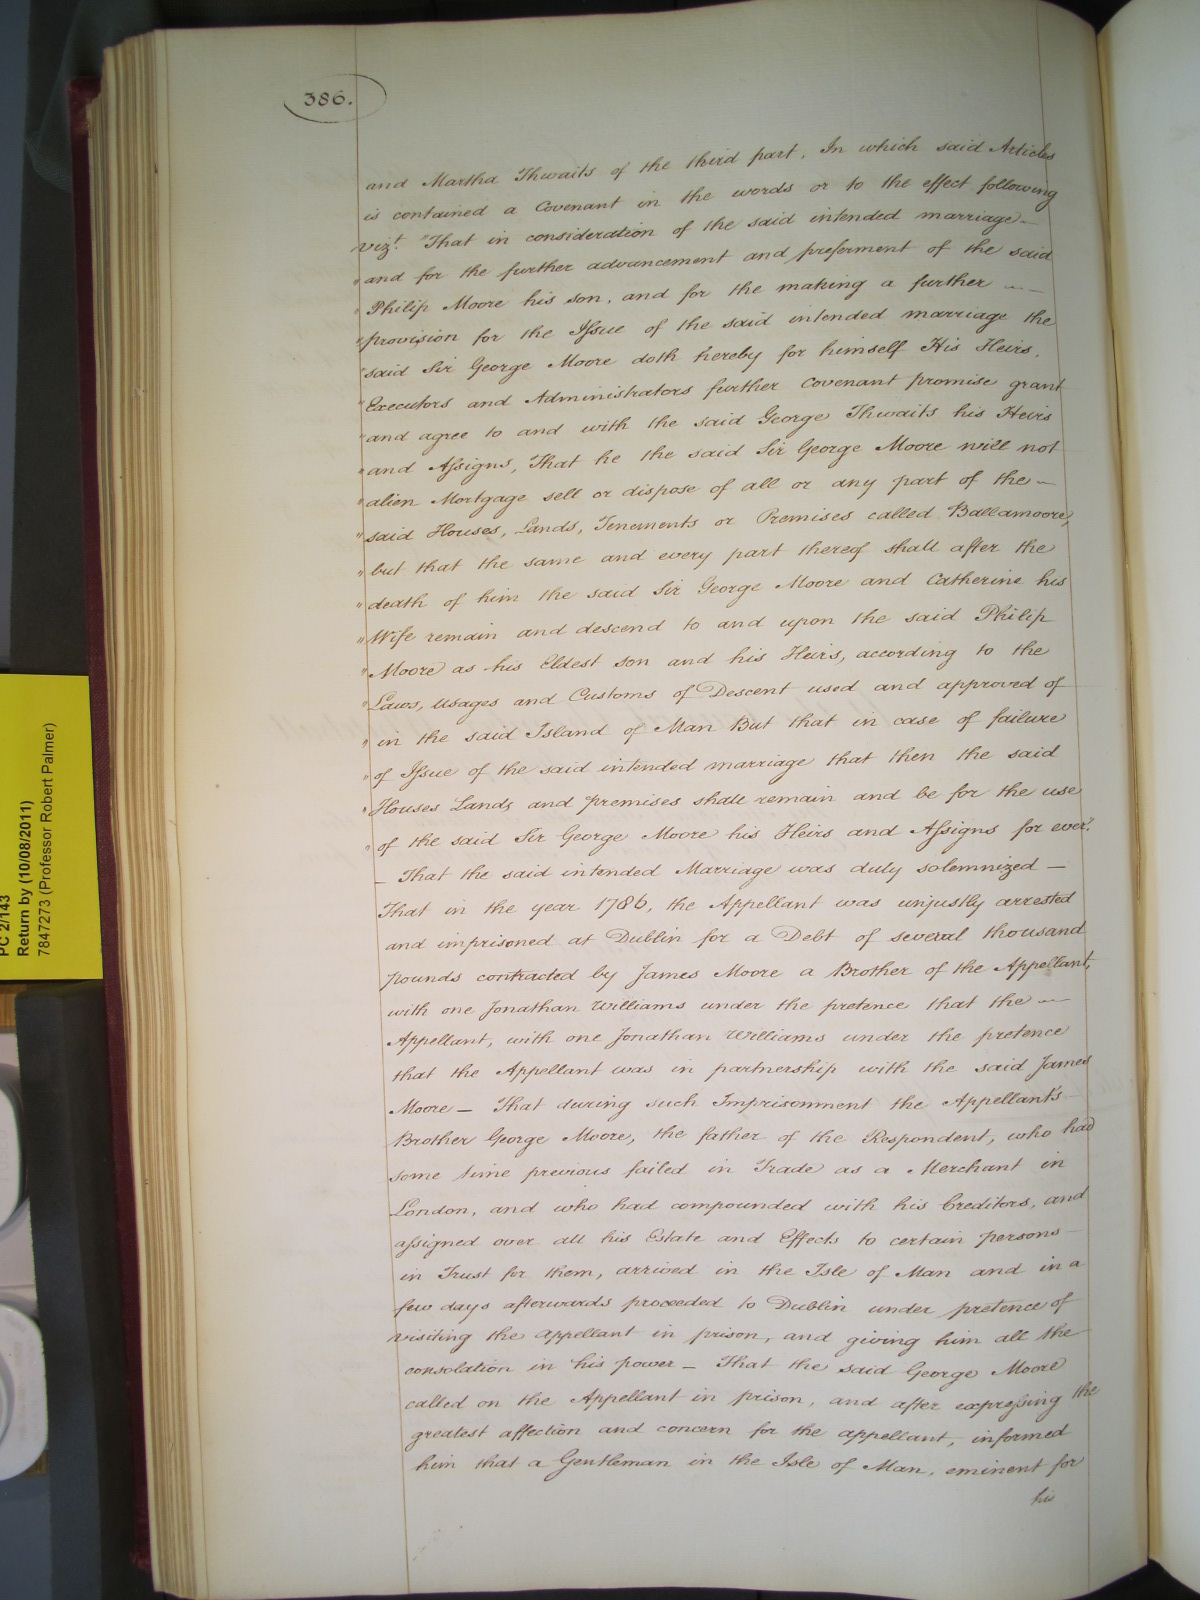 386.
and Martha Thwaits of the third part, In which said Articles
is contained a Covenant in the words or to the effect following
vizt. "That in consideration of the said intended marriage
"and for the further advancement and preferment of the said
"Philip Moore his son, and for the making a further
"provision for the Issue of the said intended marriage the
"said Sir George Moore doth hereby for himself His Heirs,
"Executors and Administrators further Covenant promise grant
"and agree to and with the said George Thwaits his Heirs
"and Assigns, That he the said Sir George Moore will not
"alien Mortgage sell or dispose of all or any part of the
"said Houses, Lands, Tenements or Premises called Ballamoore,
"but that the same and every part thereof shall after the
"death of him the said Sir George Moore and Catherine his
"Wife remain and descend to and upon the said Philip
"Moore as his Eldest son and his Heirs, according to the
"Laws, usages and Customs of Descent used and approved of
"in the said Island of Man But that in case of failure
"of Issue of the said intended marriage that then the said
"Houses Lands and premises shall remain and be for the use
"of the said Sir George Moore his Heirs and Assigns for ever."
— That the said intended Marriage was duly solemnized —
That in the year 1786, the Appellant was unjustly arrested
and imprisoned at Dublin for a Debt of several thousand
pounds contracted by James Moore a Brother of the Appellant,
with one Jonathan Williams under the pretence that the
Appellant, with one Jonathan Williams under the pretence
that the Appellant was in partnership with the said James
Moore — That during such Imprisonment the Appellant's
Brother George Moore, the father of the Respondent, who had
some time previous failed in Trade as a Merchant in
London, and who had compounded with his Creditors, and
assigned over all his Estate and Effects to certain persons
in Trust for them, arrived in the Isle of Man and in a
few days afterwards proceeded to Dublin under pretence of
visiting the appellant in prison, and giving him all the
consolation in his power — That the said George Moore
called on the Appellant in prison, and after expressing the
greatest affection and concern for the appellant, informed
him that a Gentleman in the Isle of Man, eminent for
his
PC 2/143
Return by (10/08/2011)
7847273 (Professor Robert Palmer)